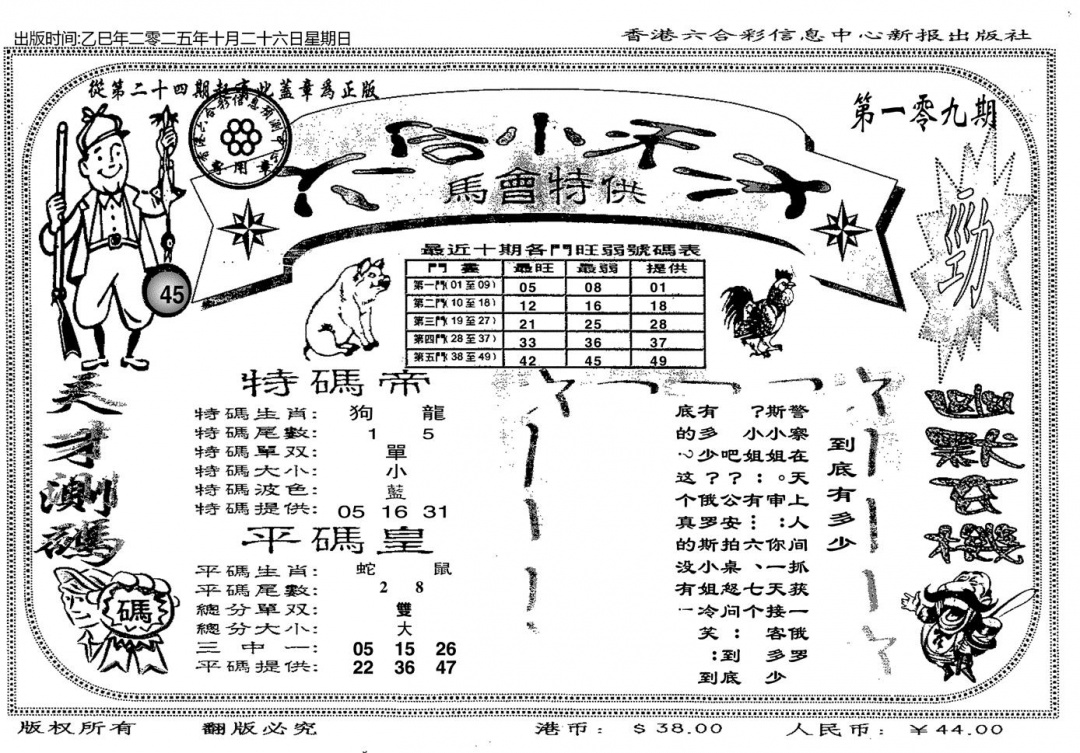 出版时间:乙巳年二零二五年十月二十六日星期日
香港六合彩信息中心新报出版社
從第二十四期起

蓋章爲正版
專用章
第一零九期
六合小禾二才
馬會特供
勁
45
最近十期各門旺弱號碼表
門畫 最旺 最弱 提供
第一門(01至09) 05 08 01
第二門(10至18) 12 16 18
第三門(19至27) 21 25 28
第四門(28至37) 33 36 37
第五門(38至49) 42 45 49
天才測碼
特碼帝
特碼生肖: 狗 龍
特碼尾數: 1 5
特碼單双: 單
特碼大小: 小
特碼波色: 藍
特碼提供: 05 16 31
平碼皇
平碼生肖: 蛇 鼠
平碼尾數: 2 8
總分單双: 雙
總分大小: 大
三中一: 05 15 26
平碼提供: 22 36 47
碼
幽默玄機
到底有多少
警察在天上人间抓获一俄罗
斯小姐。审:你一天接客多少
?小姐:有…六、七个
吧?公安拍桌怒问:到底
有多少?俄罗斯小姐冷笑:到
底的?这个真的没有
版权所有 翻版必究 港币: $38.00 人民币: ¥44.00